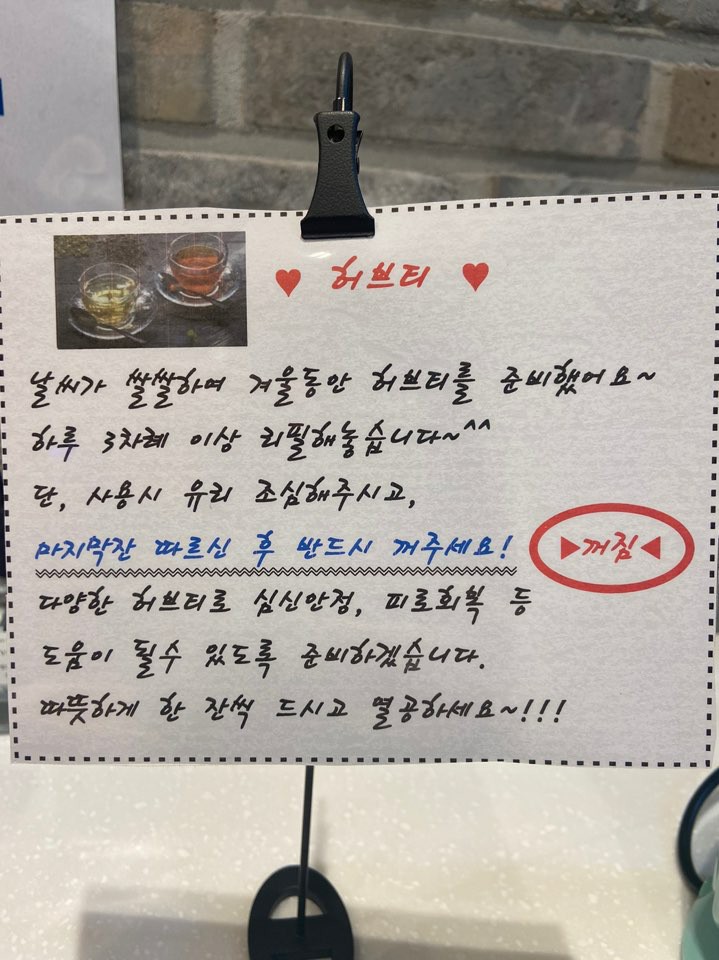 ♥ 허브티 ♥
날씨가 쌀쌀하여 겨울동안 허브티를 준비했어요~
하루 3차례 이상 리필해놓습니다~^^
단, 사용시 유리 조심해주시고,
마지막잔 따르신 후 반드시 꺼주세요! ▶꺼짐◀
다양한 허브티로 심신안정, 피로회복 등
도움이 될수 있도록 준비하겠습니다.
따뜻하게 한 잔씩 드시고 열공하세요~!!!